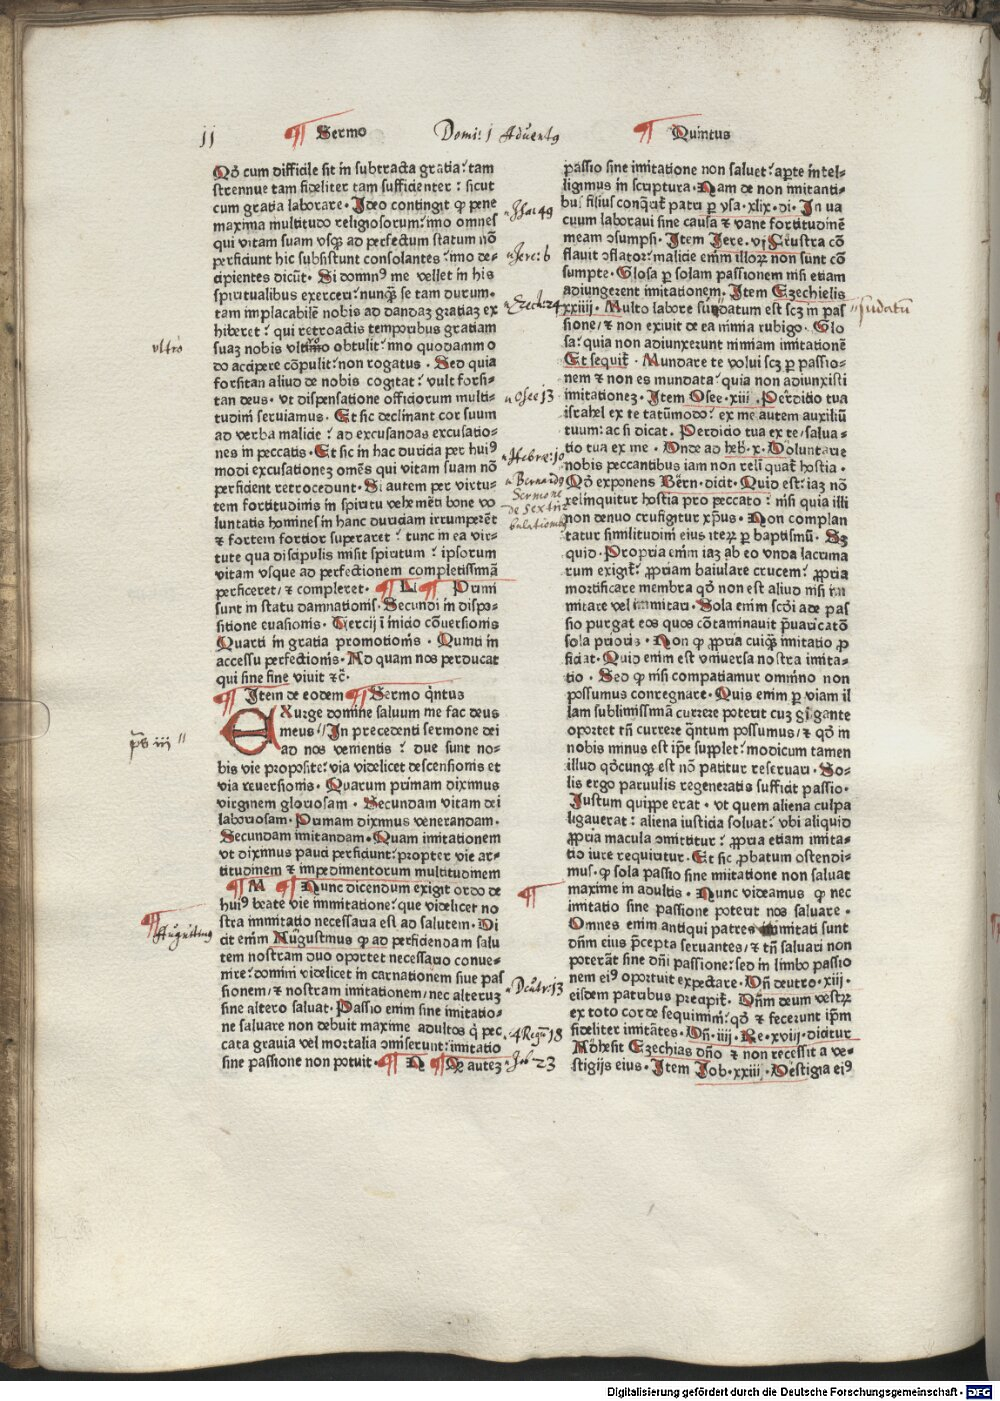 jj ¶ Sermo Domi: j Aduentꝰ ¶ Quintus
Qd̄ cum difficile sit in subtracta gratia: tam
strennue tam fideliter tam sufficienter: sicut
cum gratia laborare. Ideo contingit ꝙ pene
maxima multitudo religiosorum: immo omnes
qui vitam suam vsqꝫ ad perfectum statum nō
perficiunt hic subsistunt consolantes: immo de-
cipientes dicūt. Si domnꝰ me vellet in his
spiritualibus exerceri: nunqꝫ se tam durum.
tam implacabilē nobis ad dandaꝫ gratiaꝫ ex
hiberet: qui retroactis temporibus gratiam
suaꝫ nobis vltimo obtulit: immo quodammo
do accipere cōpulit: non rogatus. Sed quia
forsitan aliud de nobis cogitat: vult forsi-
tan deus. vt dispensatione officiorum multi-
tudini seruiamus. Et sic declinant cor suum
ad verba malicie: ad excusandas excusatio-
nes in peccatis. Et sic in hac duricia per huiꝰ
modi excusationeꝫ omēs qui vitam suam nō
perficient retrocedunt. Si autem per virtu-
tem fortitudinis in spiritu vehemēti bone vo
luntatis homines in hanc duriciam irrumperēt
⁊ fortem fortior superaret: tunc in ea vir-
tute qua discipulis misit spiritum: ipsorum
vitam vsque ad perfectionem completissimā
perficeret/ ⁊ compleret. ¶ L ¶ Primi
sunt in statu damnationis. Secundi in dispo-
sitione euasionis. Tercij ī inicio cōuersionis
Quarti in gratia promotionis. Quinti in
accessu perfectionis. Ad quam nos perducat
qui sine fine viuit ⁊c̄.
¶ Item de eodem ¶ Sermo q̄ntus
EXurge domine saluum me fac deus
meus// In precedenti sermone dei
ad nos venientis: due sunt no-
bis vie proposite: via videlicet descensionis et
via reuersionis. Quarum primam diximus
virginem gloriosam. Secundam vitam dei
laboriosam. Primam diximus venerandam.
Secundam imitandam. Quam imitationem
vt diximus pauci perficiunt: propter vie ar-
titudinem ⁊ impedimentorum multitudinem
¶ M ¶ Nunc dicendum exigit ordo de
huiꝰ beate vie immitatione: que videlicet no
stra immitatio necessaria est ad salutem. Di
cit enim Augustinus ꝙ ad perficiendam salu
tem nostram duo oportet necessario conue-
nire: domini videlicet in carnationem siue pas
sionem/ ⁊ nostram imitationem/ nec alteruꝫ
sine altero saluat. Passio enim sine imitatio-
ne saluare non debuit maxime adultos q̇ pec
cata grauia vel mortalia cōmiserunt: immitatio
sine passione non potuit. ¶ N ¶ Qꝫ auteꝫ
passio sine imitatione non saluet: aperte intel-
ligimus in scriptura. Nam de non imitanti-
bus filius conqͥrit̄ patri ꝑ ysa. xlix. di. In va
cuum laboraui sine causa ⁊ vane fortitudinē
meam ↄsumpsi. Item Jere. vj Frustra cō
flauit ↄflator: malicie enim illoꝝ non sunt cō
sumpte. Glosa ꝑ solam passionem nisi etiam
adiungerent imitationem. Item Ezechielis
xxiiij. Multo labore sudatum est scꝫ in pas
sione/ ⁊ non exiuit de ea nimia rubigo. Glo
sa: quia non adiunxerunt nimiam imitationē
Et sequit̄. Mundare te volui scꝫ ꝑ passio-
nem ⁊ non es mundata: quia non adiunxisti
imitationeꝫ. Item Osee. xiii. Perditio tua
israhel ex te tatūmodo: ex me autem auxiliū
tuum: ac si dicat. Perdicio tua ex te/ salua-
tio tua ex me. Unde ad heb̄. x. Voluntarie
nobis peccantibus iam non reliqͥuat̄ hostia.
Qd̄ exponens Bern̄. dicit. Quid est: iaꝫ nō
relinquitur hostia pro peccato: nisi quia illi
non denuo crucifigitur xp̄us. Non complan
tatur similitudini eius iteꝝ ꝑ baptismū. Sꝫ
quid. Propria enim iaꝫ ab eo vnda lacrima
rum exigit̄: ꝓpriam baiulare crucem: ꝓpria
mortificare membra qd̄ non est aliud nisi im
mitare vel immitari. Sola enim scd̓i ade pas
sio purgat eos quos cōtaminauit p̄uaricatō
sola prioris. Non ꝙ ꝓpria cuiqꝫ imitatio ꝓ
ficiat. Quid enim est vniuersa nostra imita-
tio. Sed ꝙ nisi compatiamur omnino non
possumus conregnare. Quis enim ꝑ viam il
lam sublimissimā currere poterit cuꝫ gigante
oportet tn̄ currere q̄ntum possumus/ ⁊ qd̄ in
nobis minus est ip̄e supplet: modicum tamen
illud qd̄cunqꝫ est nō patitur reseruari. So-
lis ergo paruulis regeneratis sufficit passio.
Justum quippe erat. vt quem aliena culpa
ligauerat: aliena iusticia soluat: vbi aliquid
ꝓpria macula ↄmittitur: ꝓpria etiam imita-
tio iure requiritur. Et sic ꝓbatum ostendi-
mus. ꝙ sola passio sine imitatione non saluat
maxime in adultis. Nunc videamus ꝙ nec
imitatio sine passione poterit nos saluare.
Omnes enim antiqui patres immitati sunt
dn̄m eius p̄cepta seruantes/ ⁊ tn̄ saluari non
poterāt sine dn̄i passione: sed in limbo passio
nem eiꝰ oportuit expectare. Vn̄ deutro. xiij.
eisdem patribus precipit̄. Dn̄m deum vestꝝ
ex toto corde sequimini: qd̄ ⁊ fecerunt ip̄m
fideliter imitātes. Vn̄. iiij. Re. xviij. dicitur
Adhesit Ezechias dn̄o ⁊ non recessit a ve-
stigijs eius. Item Job. xxiij. Vestigia eiꝰ
Jsai: 49
Jere: 6
Ezech: 24
sudatū
vltro
Osee 13
Hebræ: 10
Bernardꝰ
Sermone
de sex tri
bulationibꝰ
ps iii
Augustinꝰ
Deutr: 13
4 Regū 18
Job 23
Digitalisierung gefördert durch die Deutsche Forschungsgemeinschaft - DFG